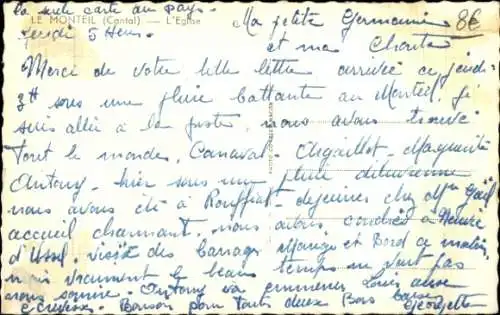 la seule carte au pays.
LE MONTEIL (Cantal) — L'Eglise
Jeudi 5 Heures
Ma petite Germaine
8€
et ma Chanta
Merci de votre belle lettre arrivée ce jeudi
3H sous une pluie battante au Monteil, j'ai
suis allée à la poste, nous avons trouvé
tout le monde, Canaval. Argaillot, Marguerite
Antony - hier sous une pluie diluvienne
nous avons été à Rouffiat - déjeuner chez Mme
accueil charmant, nous avons couché à Neuvic
d'Ussel, visité des barrages Marèges et Bord ce matin,
mais vraiment le beau temps ne suit pas
nous sommes. Antony va emmener Louis aux
écrevisses. Bonson pour toutes deux Bons baisers
Georgette